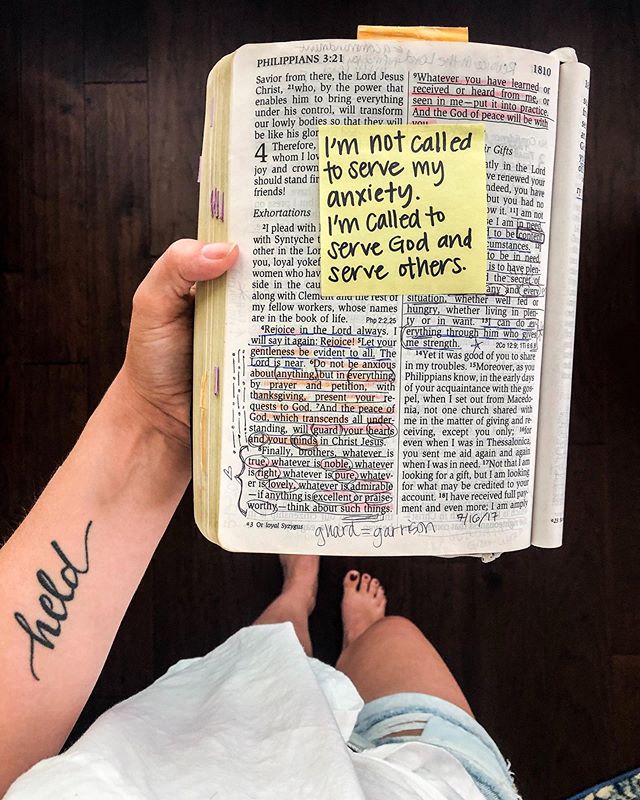 PHILIPPIANS 3:21
1810
Savior from there, the Lord Jesus
Christ, 21who, by the power that
enables him to bring everything
under his control, will transform
our lowly bodies so that they will
be like his glor
4 Therefore,
whom I lov
joy and crown
should stand fir
friends!
Exhortations
2I plead with
with Syntyche t
other in the Lor
you, loyal yokef
women who hav
side in the cau
along with Clement and the rest of
my fellow workers, whose names
are in the book of life.
4Rejoice in the Lord always. I
will say it again: Rejoice! 5Let your
gentleness be evident to all. The
Lord is near. 6Do not be anxious
about anything, but in everything,
by prayer and petition, with
thanksgiving, present your re-
quests to God. 7And the peace of
God, which transcends all under-
standing, will guard your hearts
and your minds in Christ Jesus.
8Finally, brothers, whatever is
true, whatever is noble, whatever
is right, whatever is pure, whatev-
er is lovely, whatever is admirable
—if anything is excellent or praise-
worthy—think about such things.
*3 Or loyal Syzygus
guard = garrison
9Whatever you have learned or
received or heard from me, or
seen in me—put it into practice.
And the God of peace will be with
you.
I'm not called
to serve my
anxiety.
I'm called to
serve God and
serve others.
ir Gifts
atly in the Lord
ve renewed your
ndeed, you have
but you had no
ow it. 11I am not
se I am in need,
d to be content
cumstances.
to be in need,
is to have plen-
the secret
any and every
situation, whether well fed or
hungry, whether living in plen-
ty or in want. 13I can do ev-
erything through him who gives
me strength.
14Yet it was good of you to share
in my troubles. 15Moreover, as you
Philippians know, in the early days
of your acquaintance with the gos-
pel, when I set out from Macedo-
nia, not one church shared with
me in the matter of giving and re-
ceiving, except you only; 16for
even when I was in Thessalonica,
you sent me aid again and again
when I was in need. 17Not that I am
looking for a gift, but I am looking
for what may be credited to your
account. 18I have received full pay-
ment and even more; I am amply
7/16/17
held